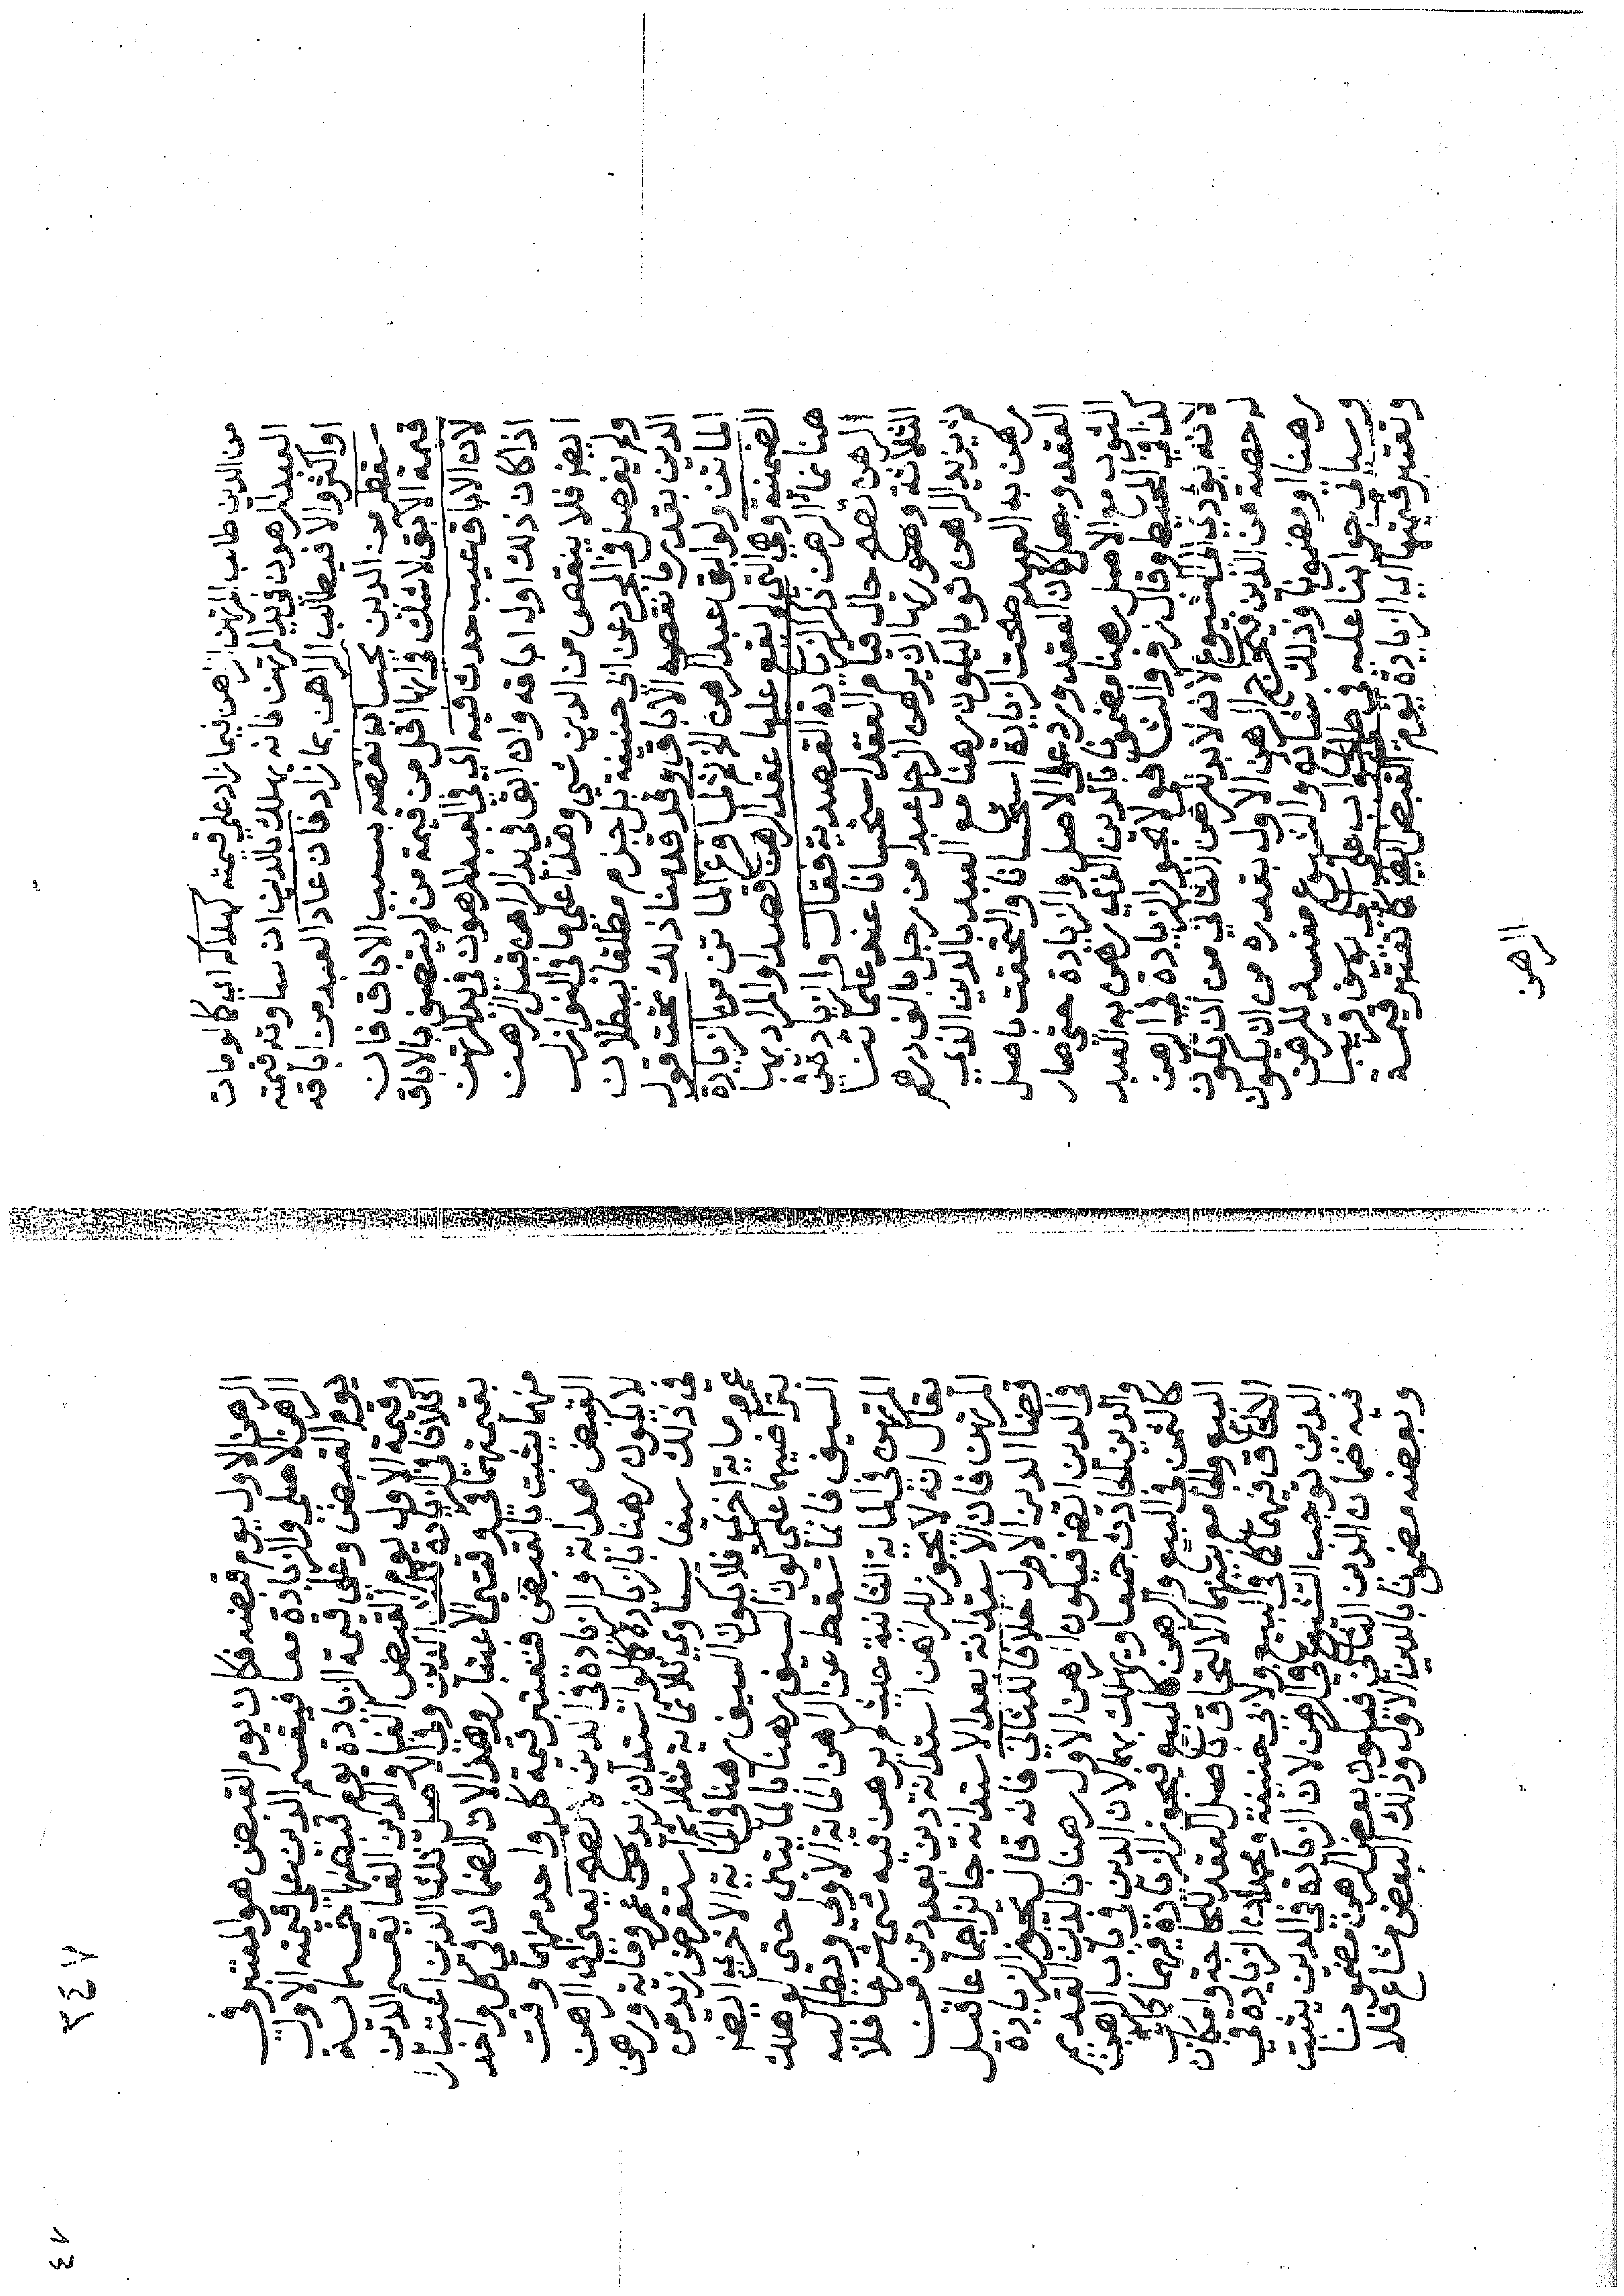 من الدين طالب المرتهن الراهن فيما زاد على قيمته كهلاكه اي كما لو مات
العبد المرهون في يد المرتهن فانه يهلك بالدين ان ساوته قيمته
او اكثر والا فيطالب الراهن بما زاد فان عاد العبد من اباقه
سقط من الدين بحساب نقصه بسبب الاباق فان
قيمة الآبق لا شك في انها اقل من قيمة من لم يتصف بالاباق
لان الاباق عيب حدث فيه اي في العبد المرهون في يد المرتهن
اذا كان ذلك اول اباقه وان ابق في يد الراهن قبل الرهن
ايضا فلا ينقص من الدين شي وهذا على ما في النوازل
ولم يفصل في المجرد عن ابي حنيفة بل جزم مطلقا ببطلان
الدين بقدر ما نقصه الاباق وقد قدمنا ذلك تحت قول
الماتن ولو ابق عبد الرهن الخ ثم لما فرغ الماتن من الزيادة
الضمنية وهي التي لم يقع عليها عقد الرهن قصدا والمراد بها
هنا نماء الرهن ذكر الزيادة القصدية فقال والزيادة في
الرهن تصح حال قيام العقد استحسانا عند علمائنا
الثلاثة وصورتها ان يرهن الرجل عبدا من رجل بالف درهم
ثم يزيد الراهن ثوبا ليكون رهنا مع العبد بالدين الذي
رهن به العبد صحت الزيادة استحسانا والتحقت باصل
العقد وجعل كان العقد ورد على الاصل والزيادة حتى صار
الثوب مع الاصل رهنا مضمونا بالدين الذي رهن به العبد
كذا في المحيط وقال زفر والشافعي لا تجوز الزيادة في الرهن
لانه يؤدي الى الشيوع لانه لا بد للرهن الثاني من ان يكون
له حصة من الدين فيخرج الرهن الاول بقدره من ان يكون
رهنا او مضمونا وذلك شائع والشيوع مفسد للرهن
وسياتي جوابنا عليه في على ابي يوسف قريبا
وتعتبر قيمتها اي الزيادة يوم القبض ايضا كما تعتبر قيمة
الرهن
٣٤٧
٤٧
الرهن الاول يوم قبضه فكان يوم القبض هو المعتبر في
الرهن الاصلي والزيادة معا فيقسم الدين على قيمته الاول
يوم القبض وعلى قيمة الزيادة يوم قبضها خمسماية
وقيمة الاول يوم القبض الفا والدين الفا يقسم الدين
اثلاثا في الزيادة ثلث الدين وفي الاصل ثلثا الدين اعتبارا
بقيمتهما في وقتي الاعتبار وهذا لان الضمان في كل واحد
منهما يثبت بالقبض فتعتبر قيمة كل واحد منهما وقت
القبض هداية والزيادة في الدين لا تصح يعني ان الرهن
لا يكون رهنا بالزيادة كما لو استدان زيد من عمرو ماية ورهن
في ذلك سيفا يساوي ثلاثماية مثلا ثم استقرض زيد من
عمرو ماية اخرى فلا يكون السيف رهنا في الماية الاخرى ايضا
بتراضيهما على كون السيف رهنا بالمايتين حتى لو هلك
السيف فانما تسقط عن الراهن الماية الاولى ويطالبه
المرتهن في الماية الثانية حيث لم يرهن فيه شي شرعا فلا
يقال انه لا يجوز للراهن استدانة دين بعد دين من
المرتهن فان الاستدانة بعد الاستدانة جائز اجماعا قبل
قضا الدين الاول خلافا للثاني فانه قال تجوز الزيادة
في الدين ايضا فيكون الرهن الاول رهنا بالدين القديم
والدين الحادث جميعا ويهلك بهما لان الدين في باب الرهن
كالثمن في البيع والرهن كالمبيع فتجوز الزيادة فيهما كما في
البيع والجامع بينهما الالتحاق باصل العقد للحاجة وامكان
الالحاق فيهما كما في البيع ولابي حنيفة ومحمد ان الزيادة في
الدين توجب الشيوع في الرهن لان الزيادة في الدين يثبت
فيه ضمان الدين الثاني فيكون بعض الرهن مضمونا
وبعضه مضمونا بالدين الاول وذلك البعض مشاع فلا